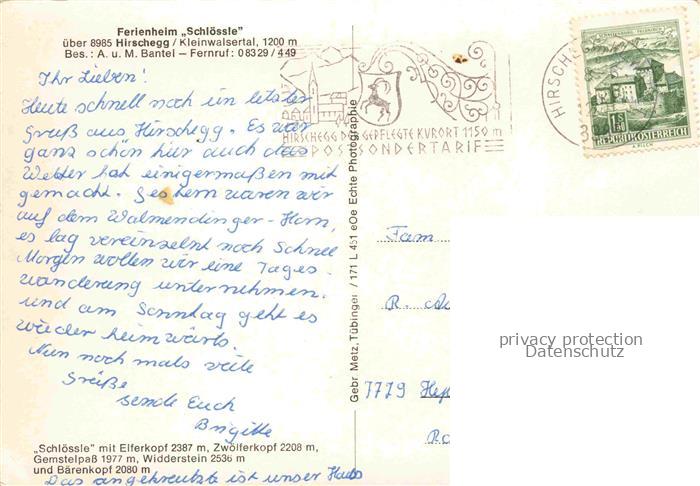 Ferienheim „Schlössle"
über 8985 Hirschegg / Kleinwalsertal, 1200 m
Bes.: A. u. M. Bantel – Fernruf: 0 83 29 / 449
Ihr Lieben!
Heute schnell noch ein letzter
Gruß aus Hirschegg. Es war
ganz schön hier auch das
Wetter hat einigermaßen mit
gemacht. Gestern waren wir
auf dem Walmendinger-Horn,
es lag vereinzelnt noch Schnee
Morgen wollen wir eine Tages-
wanderung unternehmen.
und am Sonntag geht es
wieder heimwärts.
Nun noch mals viele
Grüße
sende Euch
Brigitte
„Schlössle" mit Elferkopf 2387 m, Zwölferkopf 2208 m,
Gemstelpaß 1977 m, Widderstein 2536 m
und Bärenkopf 2080 m
Das angekreutzte ist unser Haus
Gebr. Metz, Tübingen / 171 L 451 eOe Echte Photographie
HIRSCHEGG DER GEPFLEGTE KURORT 1150 m
POSTSONDERTARIF
HIRSCHE
1 S 50
REPUBLIK ÖSTERREICH
Fam
R.
7779
privacy protection
Datenschutz